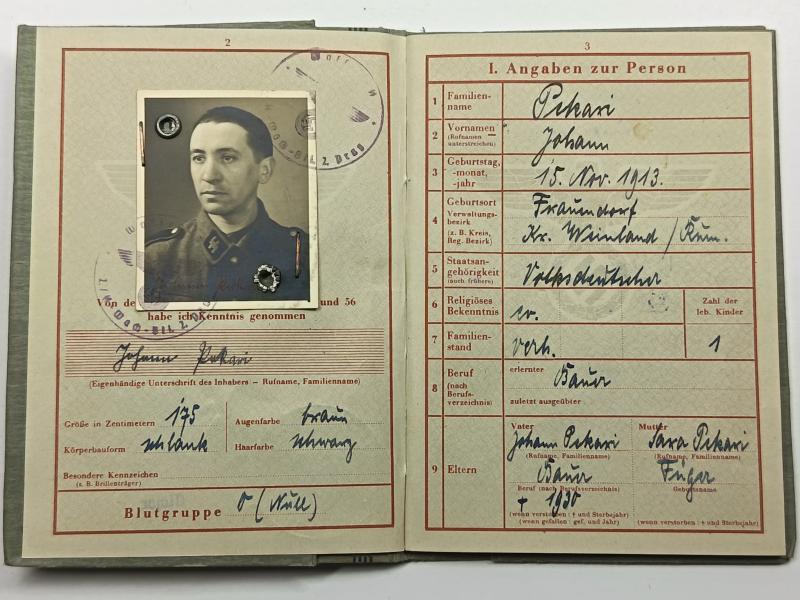 2
Von de
und 56
habe ich Kenntnis genommen
Johann Pekari
(Eigenhändige Unterschrift des Inhabers – Rufname, Familienname)
Größe in Zentimetern 175 Augenfarbe braun
Körperbauform schlank Haarfarbe schwarz
Besondere Kennzeichen
(z. B. Brillenträger)
Blutgruppe O (Null)
3
I. Angaben zur Person
1 Familienname Pekari
2 Vornamen Johann
(Rufnamen unterstreichen)
3 Geburtstag, -monat, -jahr 15. Nov. 1913.
4 Geburtsort Frauendorf
Verwaltungsbezirk
(z. B. Kreis, Reg. Bezirk) Kr. Weinland / Rum.
5 Staatsangehörigkeit Volksdeutscher
(auch frühere)
6 Religiöses Bekenntnis ev.
Zahl der leb. Kinder 1
7 Familienstand verh.
8 Beruf erlernter Bauer
(nach Berufsverzeichnis) zuletzt ausgeübter
9 Eltern
Vater Mutter
Johann Pekari Sara Pekari
(Rufname, Familienname) (Rufname, Familienname)
Bauer Füger
Beruf (nach Berufsverzeichnis) Geburtsname
† 1930
(wenn verstorben: † und Sterbejahr)
(wenn gefallen: gef. und Jahr) (wenn verstorben: † und Sterbejahr)